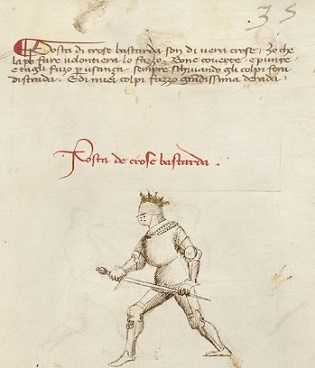 35
Posta di crose bastarda son di vera crose, zo che
la po fare volontiera lo fazzo. Bone coverte e punte
e tagli fazo p usanza sempre schivando gli colpi fora
di strada. E di miei colpi fazzo gndissima derada.
Posta de crose bastarda.